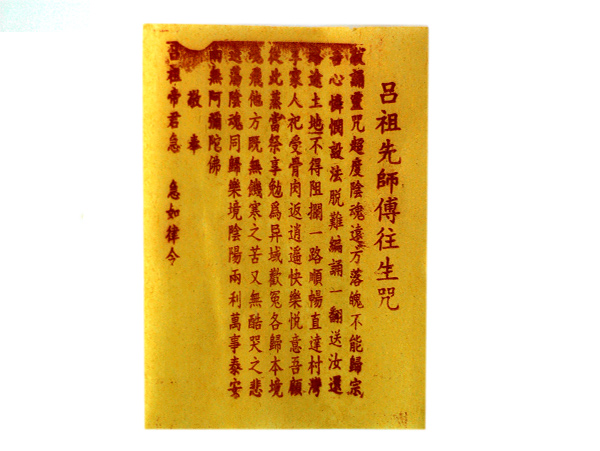 呂祖先師傅往生咒
敬誦靈咒超度陰魂遠方落魄不能歸宗
吾心憐憫設法脫難編誦一翻送汝還
路途土地不得阻攔一路順暢直達村灣
享家人祀受骨肉返逍遥快樂悦意吾願
從此蒸嘗祭享勉為异域歡冤各歸本境
魂飛他方既無饑寒之苦又無酷哭之悲
遊蕩陰魂同歸樂境陰陽兩利萬事泰安
南無阿彌陀佛
敬奉
呂祖帝君急 急如律令